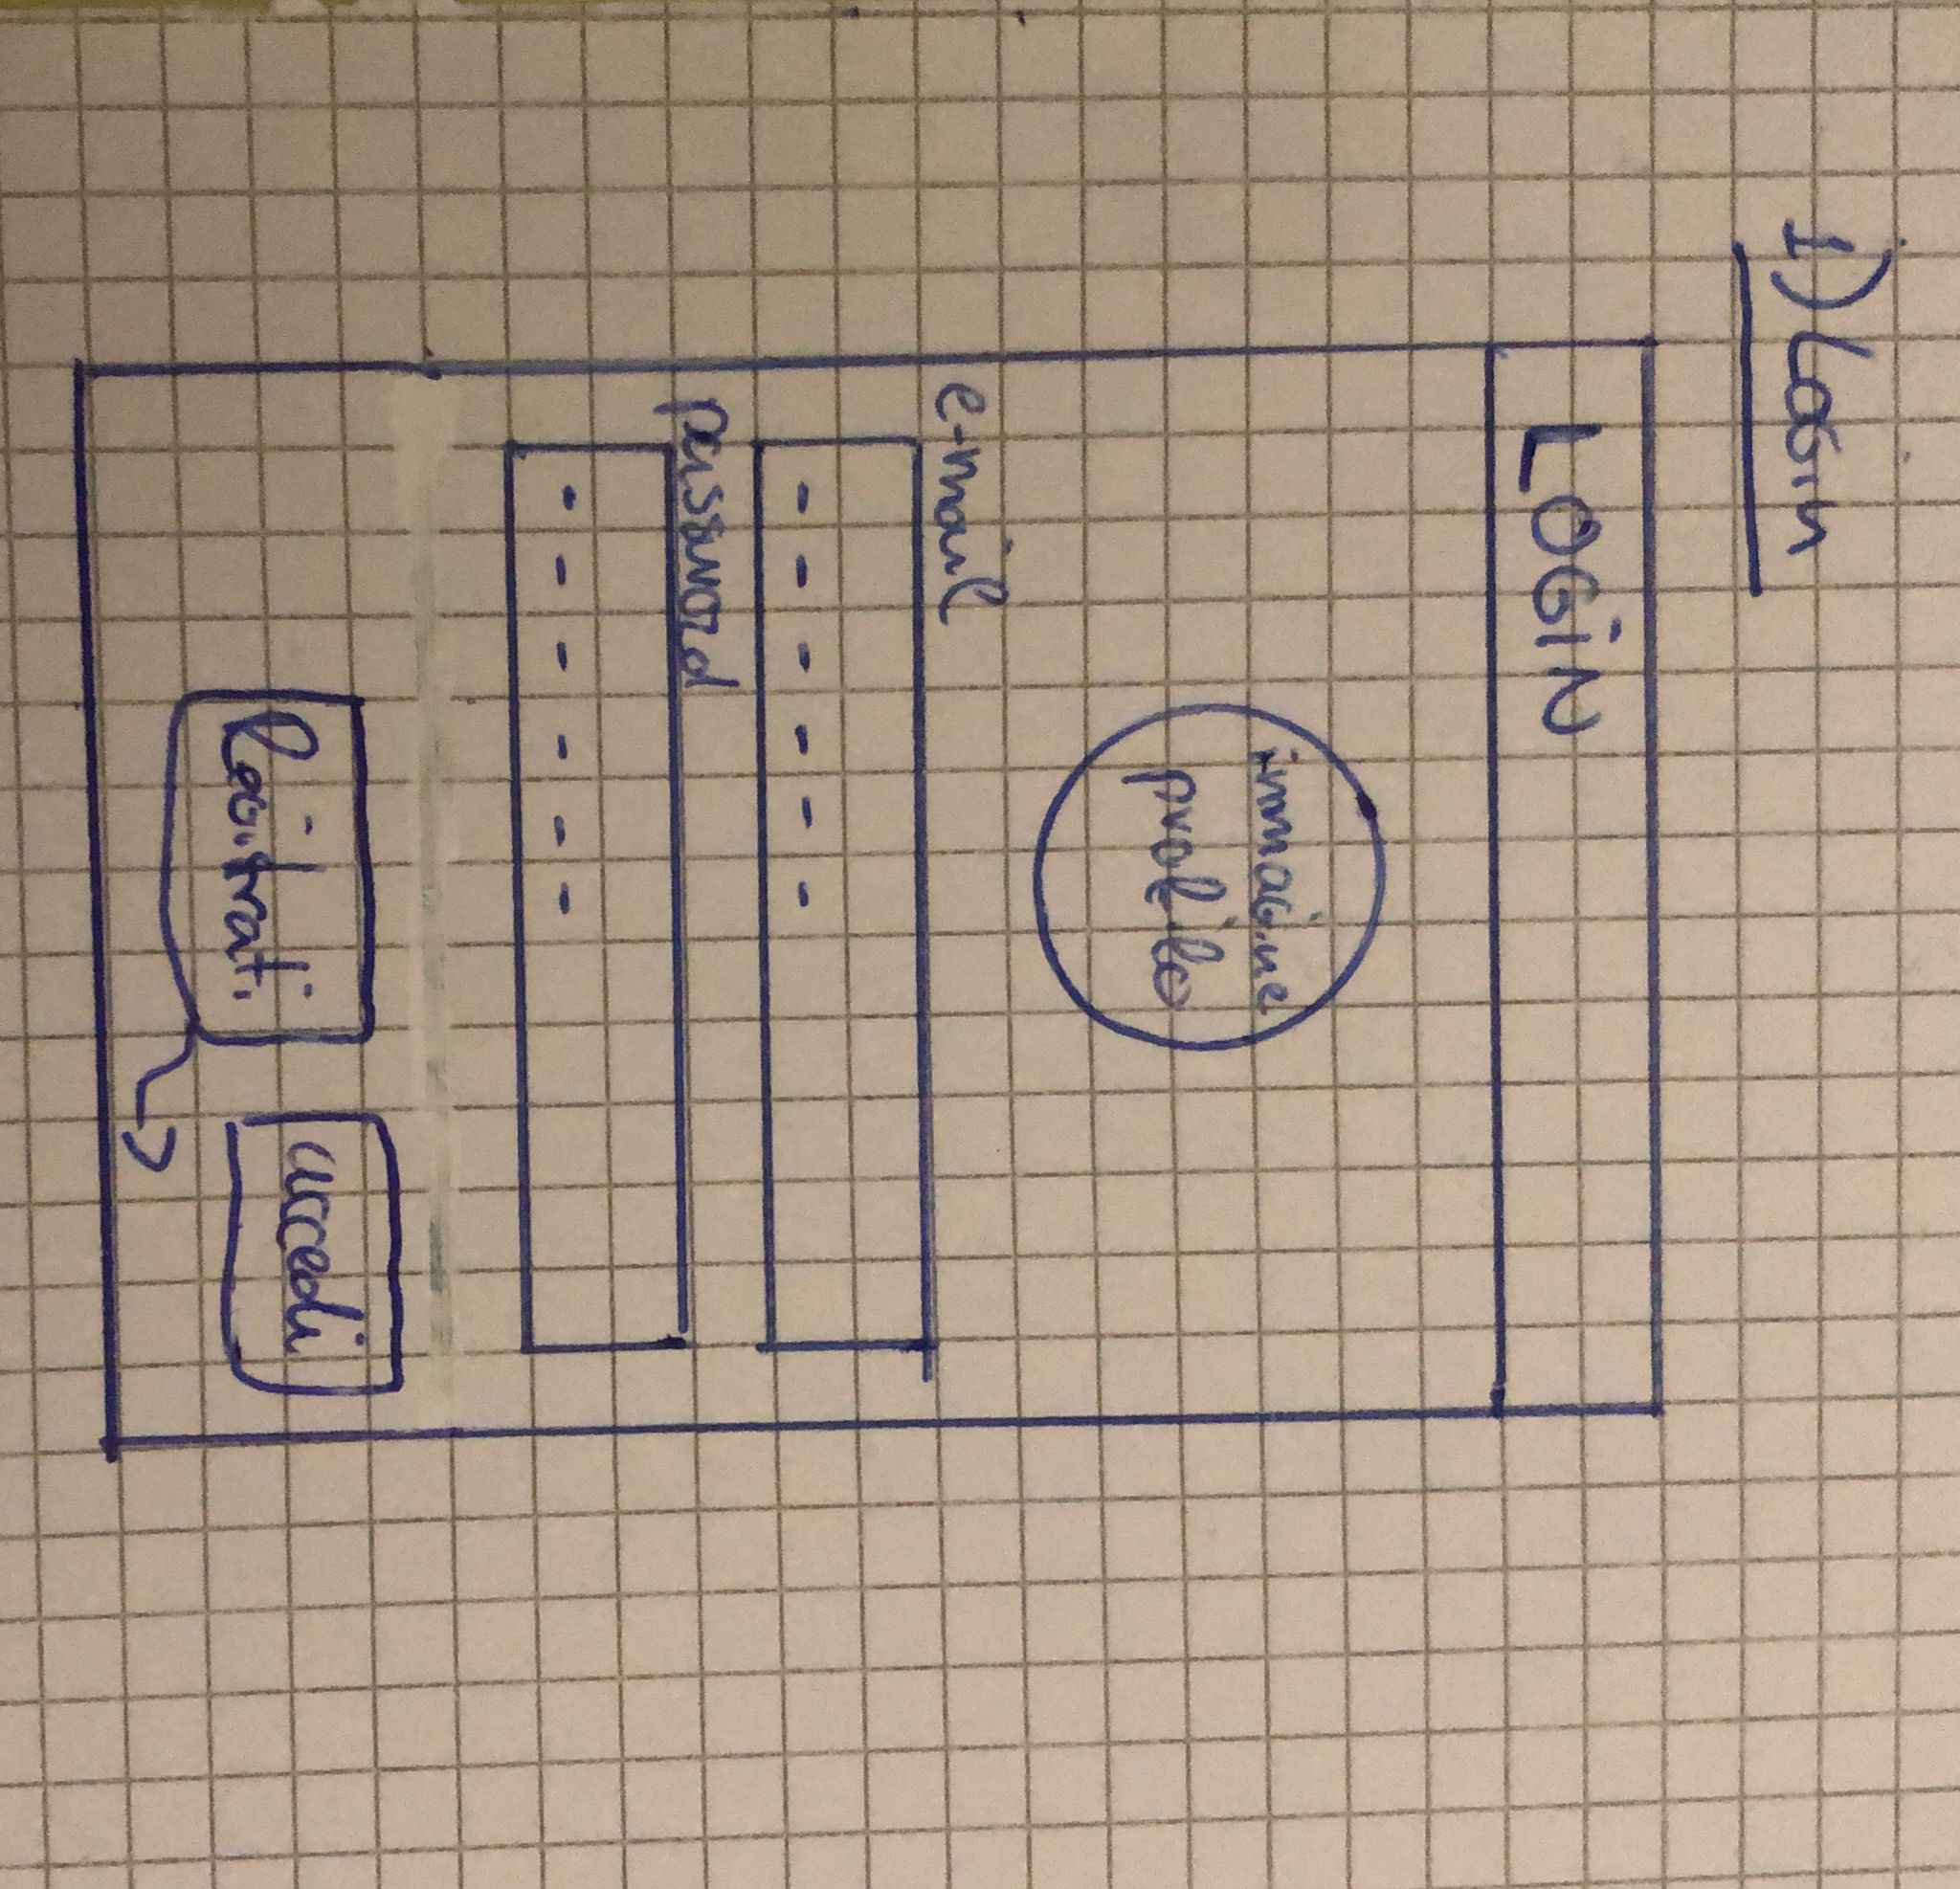 1) Login
LOGIN
immagine
profilo
e-mail
- - - - - -
password
- - - - - -
Registrati
accedi